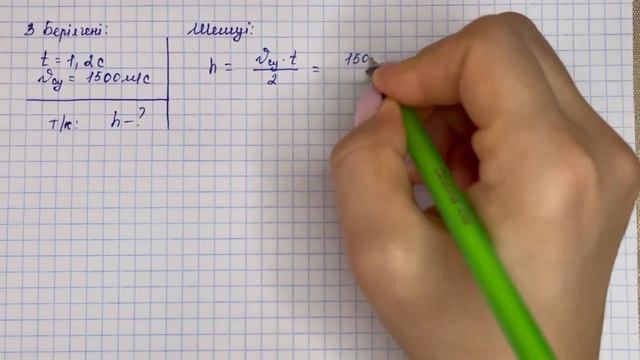 3 Берілгені:
t = 1,2с
υсу = 1500м/с
т/к: h-?
Шешуі:
h = υсу·t / 2 = 150